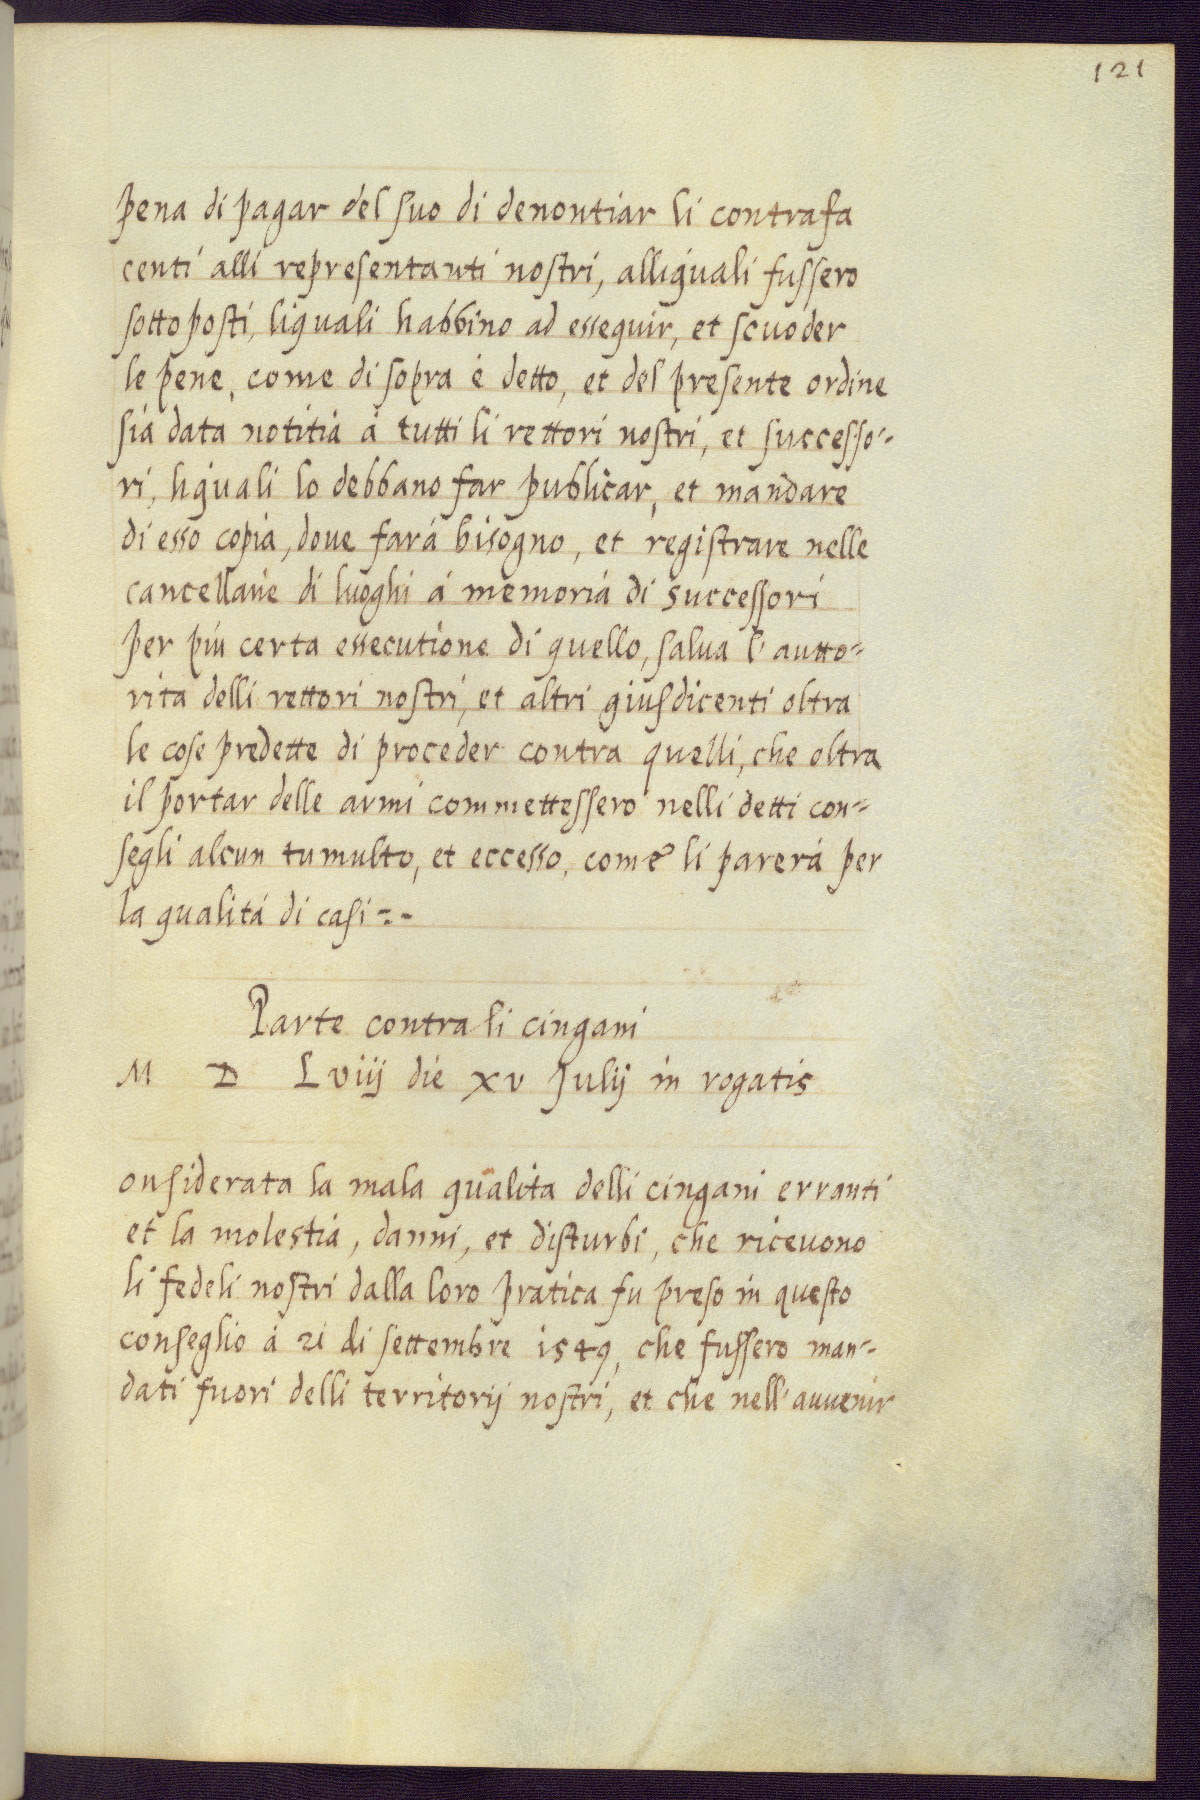 121
pena di pagar del suo di denontiar li contrafa
centi alli representanti nostri, alliquali fussero
sottoposti, liquali habbino ad essequir, et scuoder
le pene, come di sopra è detto, et del presente ordine
sia data notitia à tutti li rettori nostri, et successo=
ri, liquali lo debbano far publicar, et mandare
di esso copia, doue farà bisogno, et registrare nelle
cancellarie di luoghi à memoria di successori
per più certa essecutione di quello, salua l'autto=
rita delli rettori nostri, et altri giusdicenti oltra
le cose predette di proceder contra quelli, che oltra
il portar delle armi commettessero nelli detti con=
segli alcun tumulto, et eccesso, come li parerà per
la qualità di casi=-
Parte contra li cingani
M D Lviij die xv Julij in rogatis
onsiderata la mala qualita delli cingani erranti
et la molestia, danni, et disturbi, che riceuono
li fedeli nostri dalla loro pratica fu preso in questo
conseglio à 21 di settembre 1549, che fussero man=
dati fuori delli territorij nostri, et che nell'auuenir